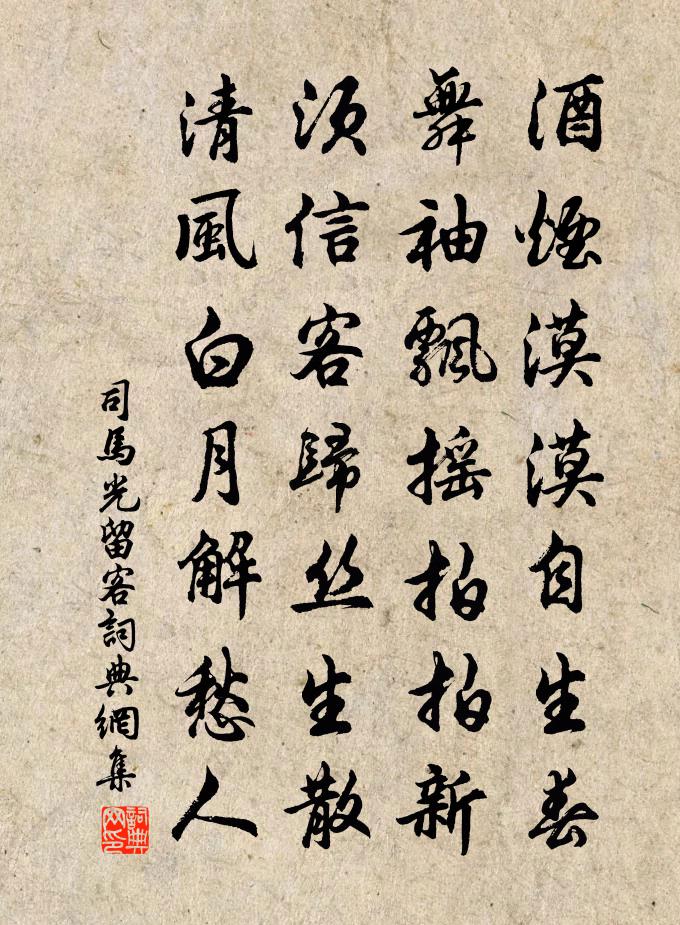 酒煙漠漠自生春
舞袖飄搖拍拍新
須信客歸丝生散
清風白月解愁人
司馬光留客詞典網集
詞典网印